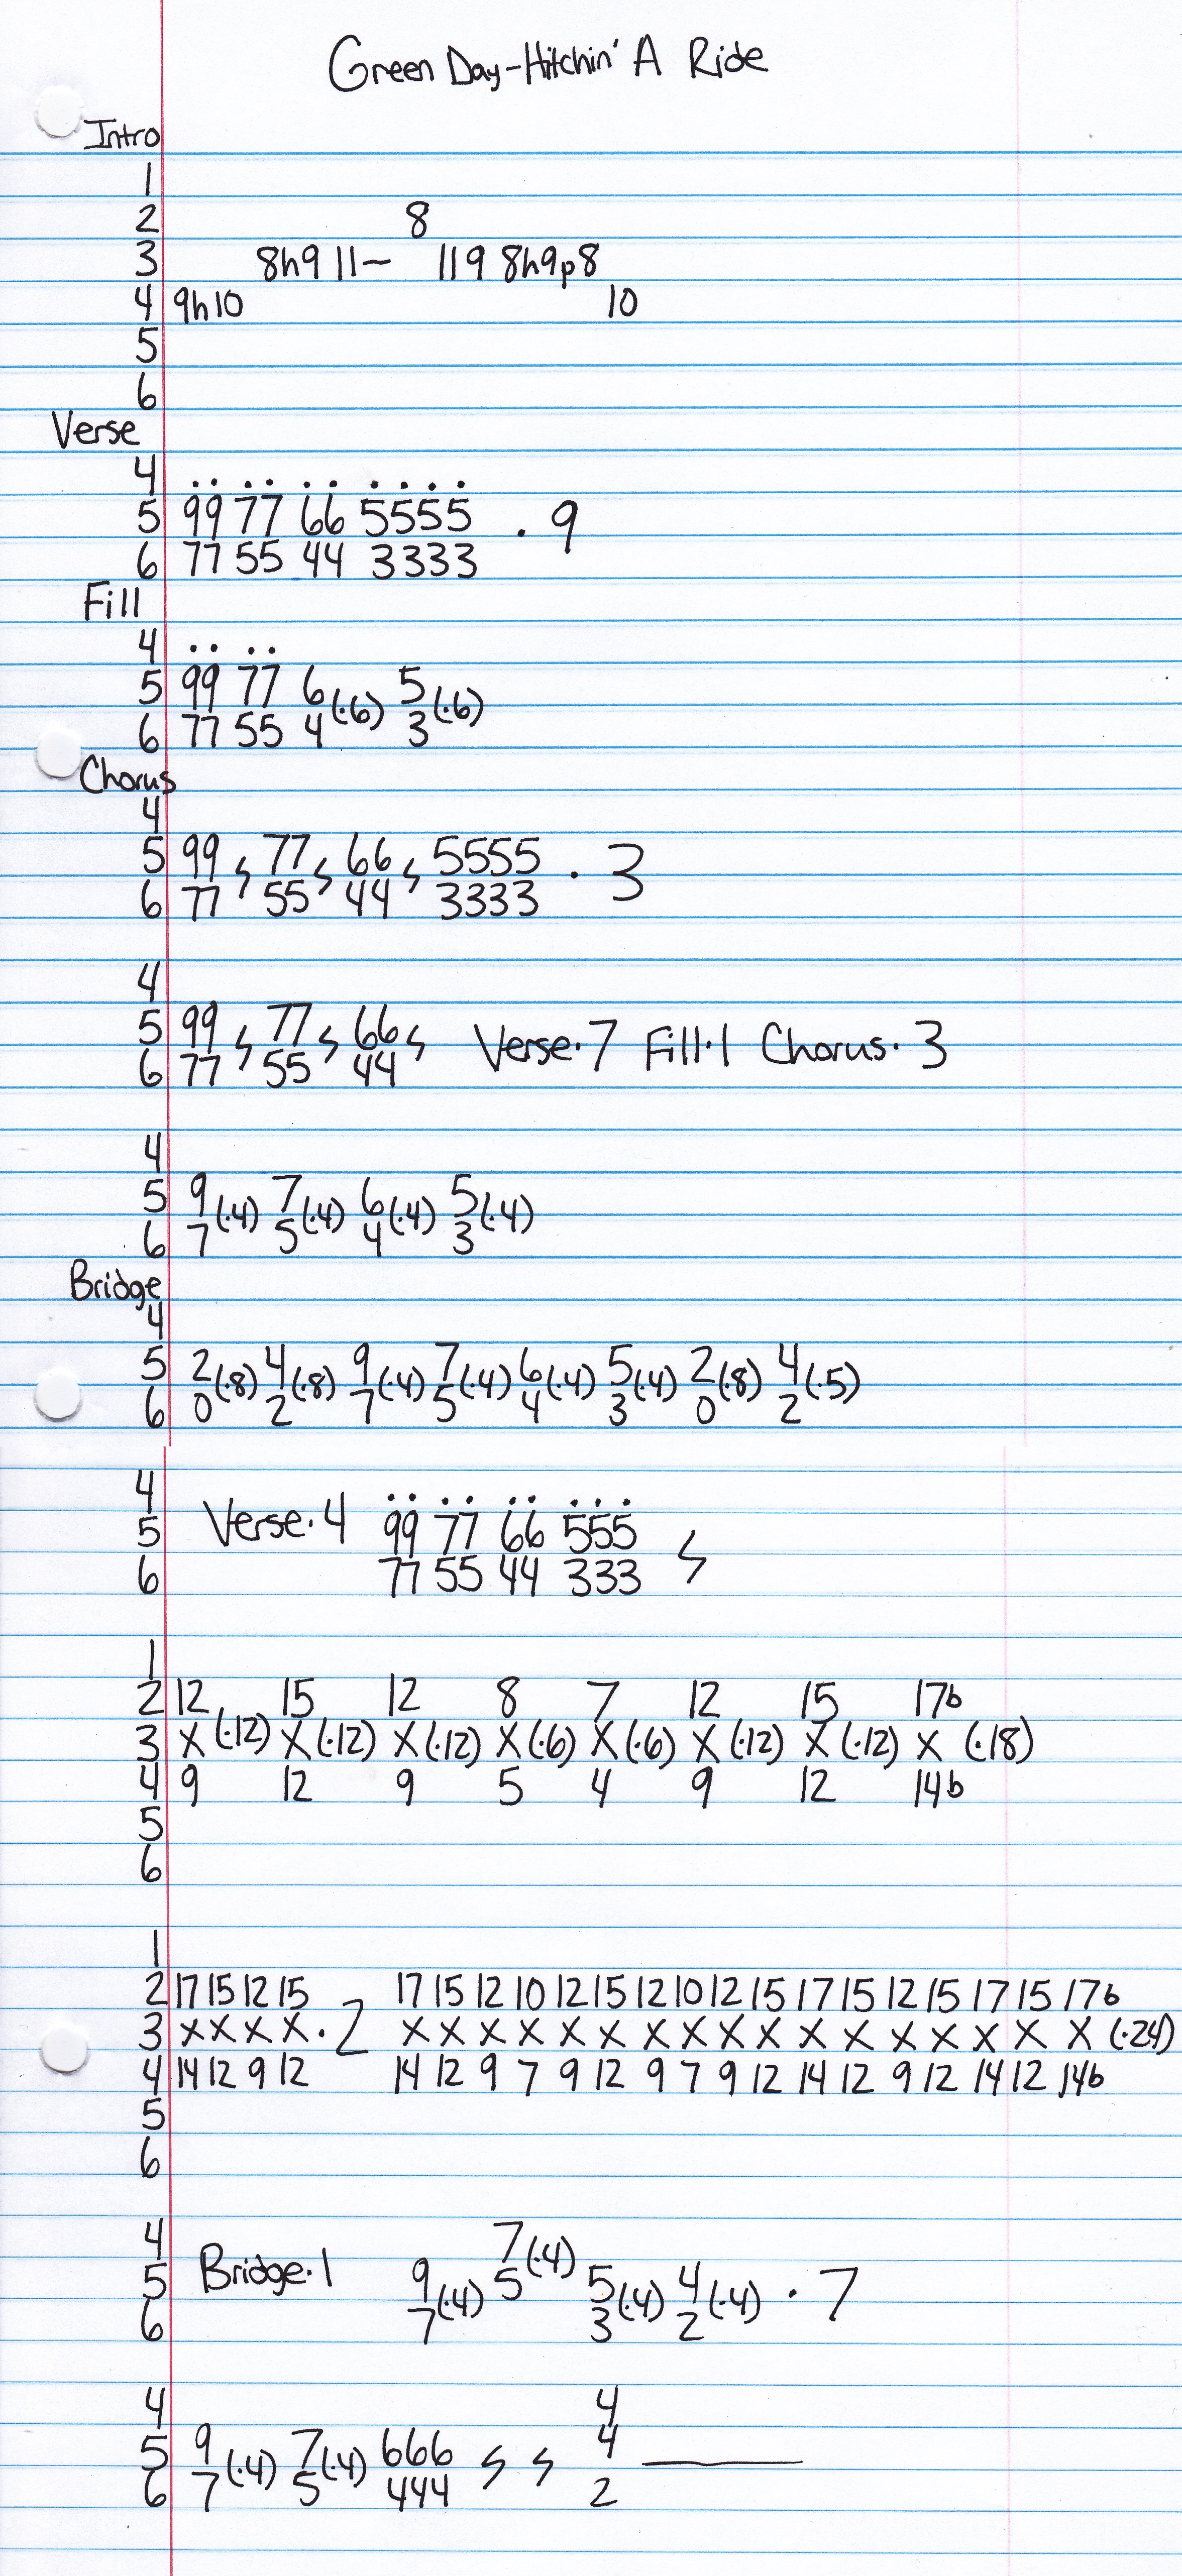 Green Day-Hitchin' A Ride
Intro
1
2 8
3 8h9 11~ 11 9 8h9p8
4 9h10 10
5
6
Verse
4 .. .. .. ....
5 99 77 66 5555 · 9
6 77 55 44 3333
Fill
4 .. ..
5 99 77 6(·6) 5(·6)
6 77 55 4 3
Chorus
4
5 99 𝄽 77 𝄽 66 𝄽 5555 · 3
6 77 55 44 3333
4
5 99 𝄽 77 𝄽 66 𝄽 Verse·7 Fill·1 Chorus·3
6 77 55 44
4
5 9(·4) 7(·4) 6(·4) 5(·4)
6 7 5 4 3
Bridge
4
5 2(·8) 4(·8) 9(·4) 7(·4) 6(·4) 5(·4) 2(·8) 4(·5)
6 0 2 7 5 4 3 0 2
4 Verse·4 .. .. .. ...
5 99 77 66 555 𝄽
6 77 55 44 333
1
2 12 15 12 8 7 12 15 17b
3 X (·12) X (·12) X (·12) X (·6) X (·6) X (·12) X (·12) X (·18)
4 9 12 9 5 4 9 12 14b
5
6
1
2 17 15 12 15 17 15 12 10 12 15 12 10 12 15 17 15 12 15 17 15 17b
3 X X X X · 2 X X X X X X X X X X X X X X X X X (·24)
4 14 12 9 12 14 12 9 7 9 12 9 7 9 12 14 12 9 12 14 12 14b
5
6
4 7(·4)
5 Bridge·1 9(·4) 5 5(·4) 4(·4) · 7
6 7 3 2
4 4
5 9(·4) 7(·4) 666 𝄽 𝄽 4 ———
6 7 5 444 2